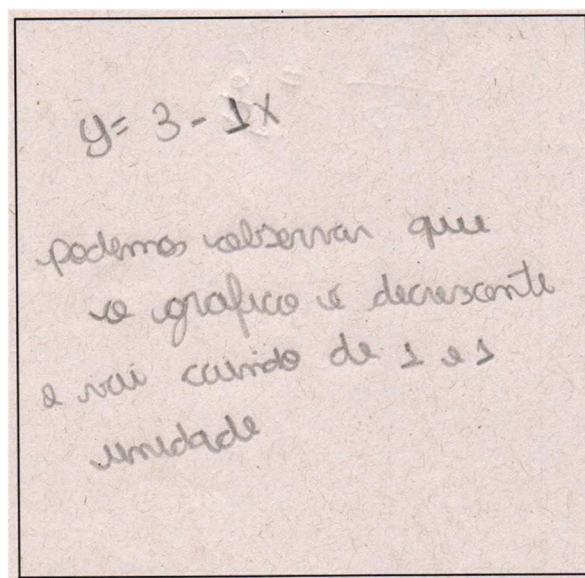 y = 3 - 1x
podemos observar que
o grafico é decrescente
e vai caindo de 1 e 1
unidade